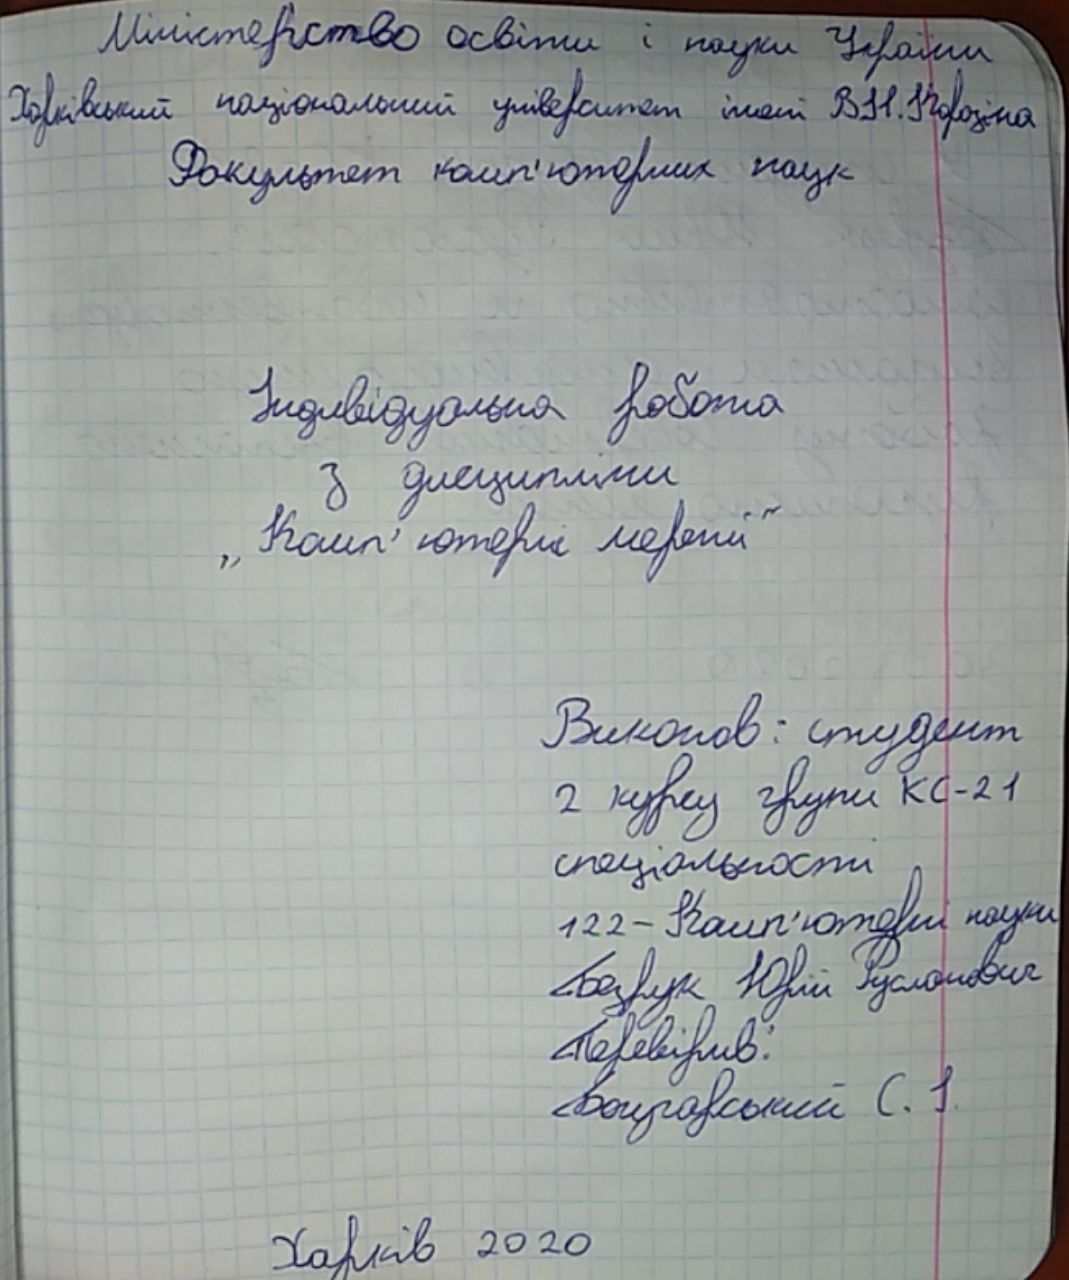 Міністерство освіти і науки України
Харківський національний університет імені В.Н.Каразіна
Факультет комп'ютерних наук
Індивідуальна робота
з дисципліни
„Комп'ютерні мережі"
Виконав: студент
2 курсу групи КС-21
спеціальності
122-Комп'ютерні науки
Безрук Юрій Русланович
Перевірив:
С. І.
Харків 2020